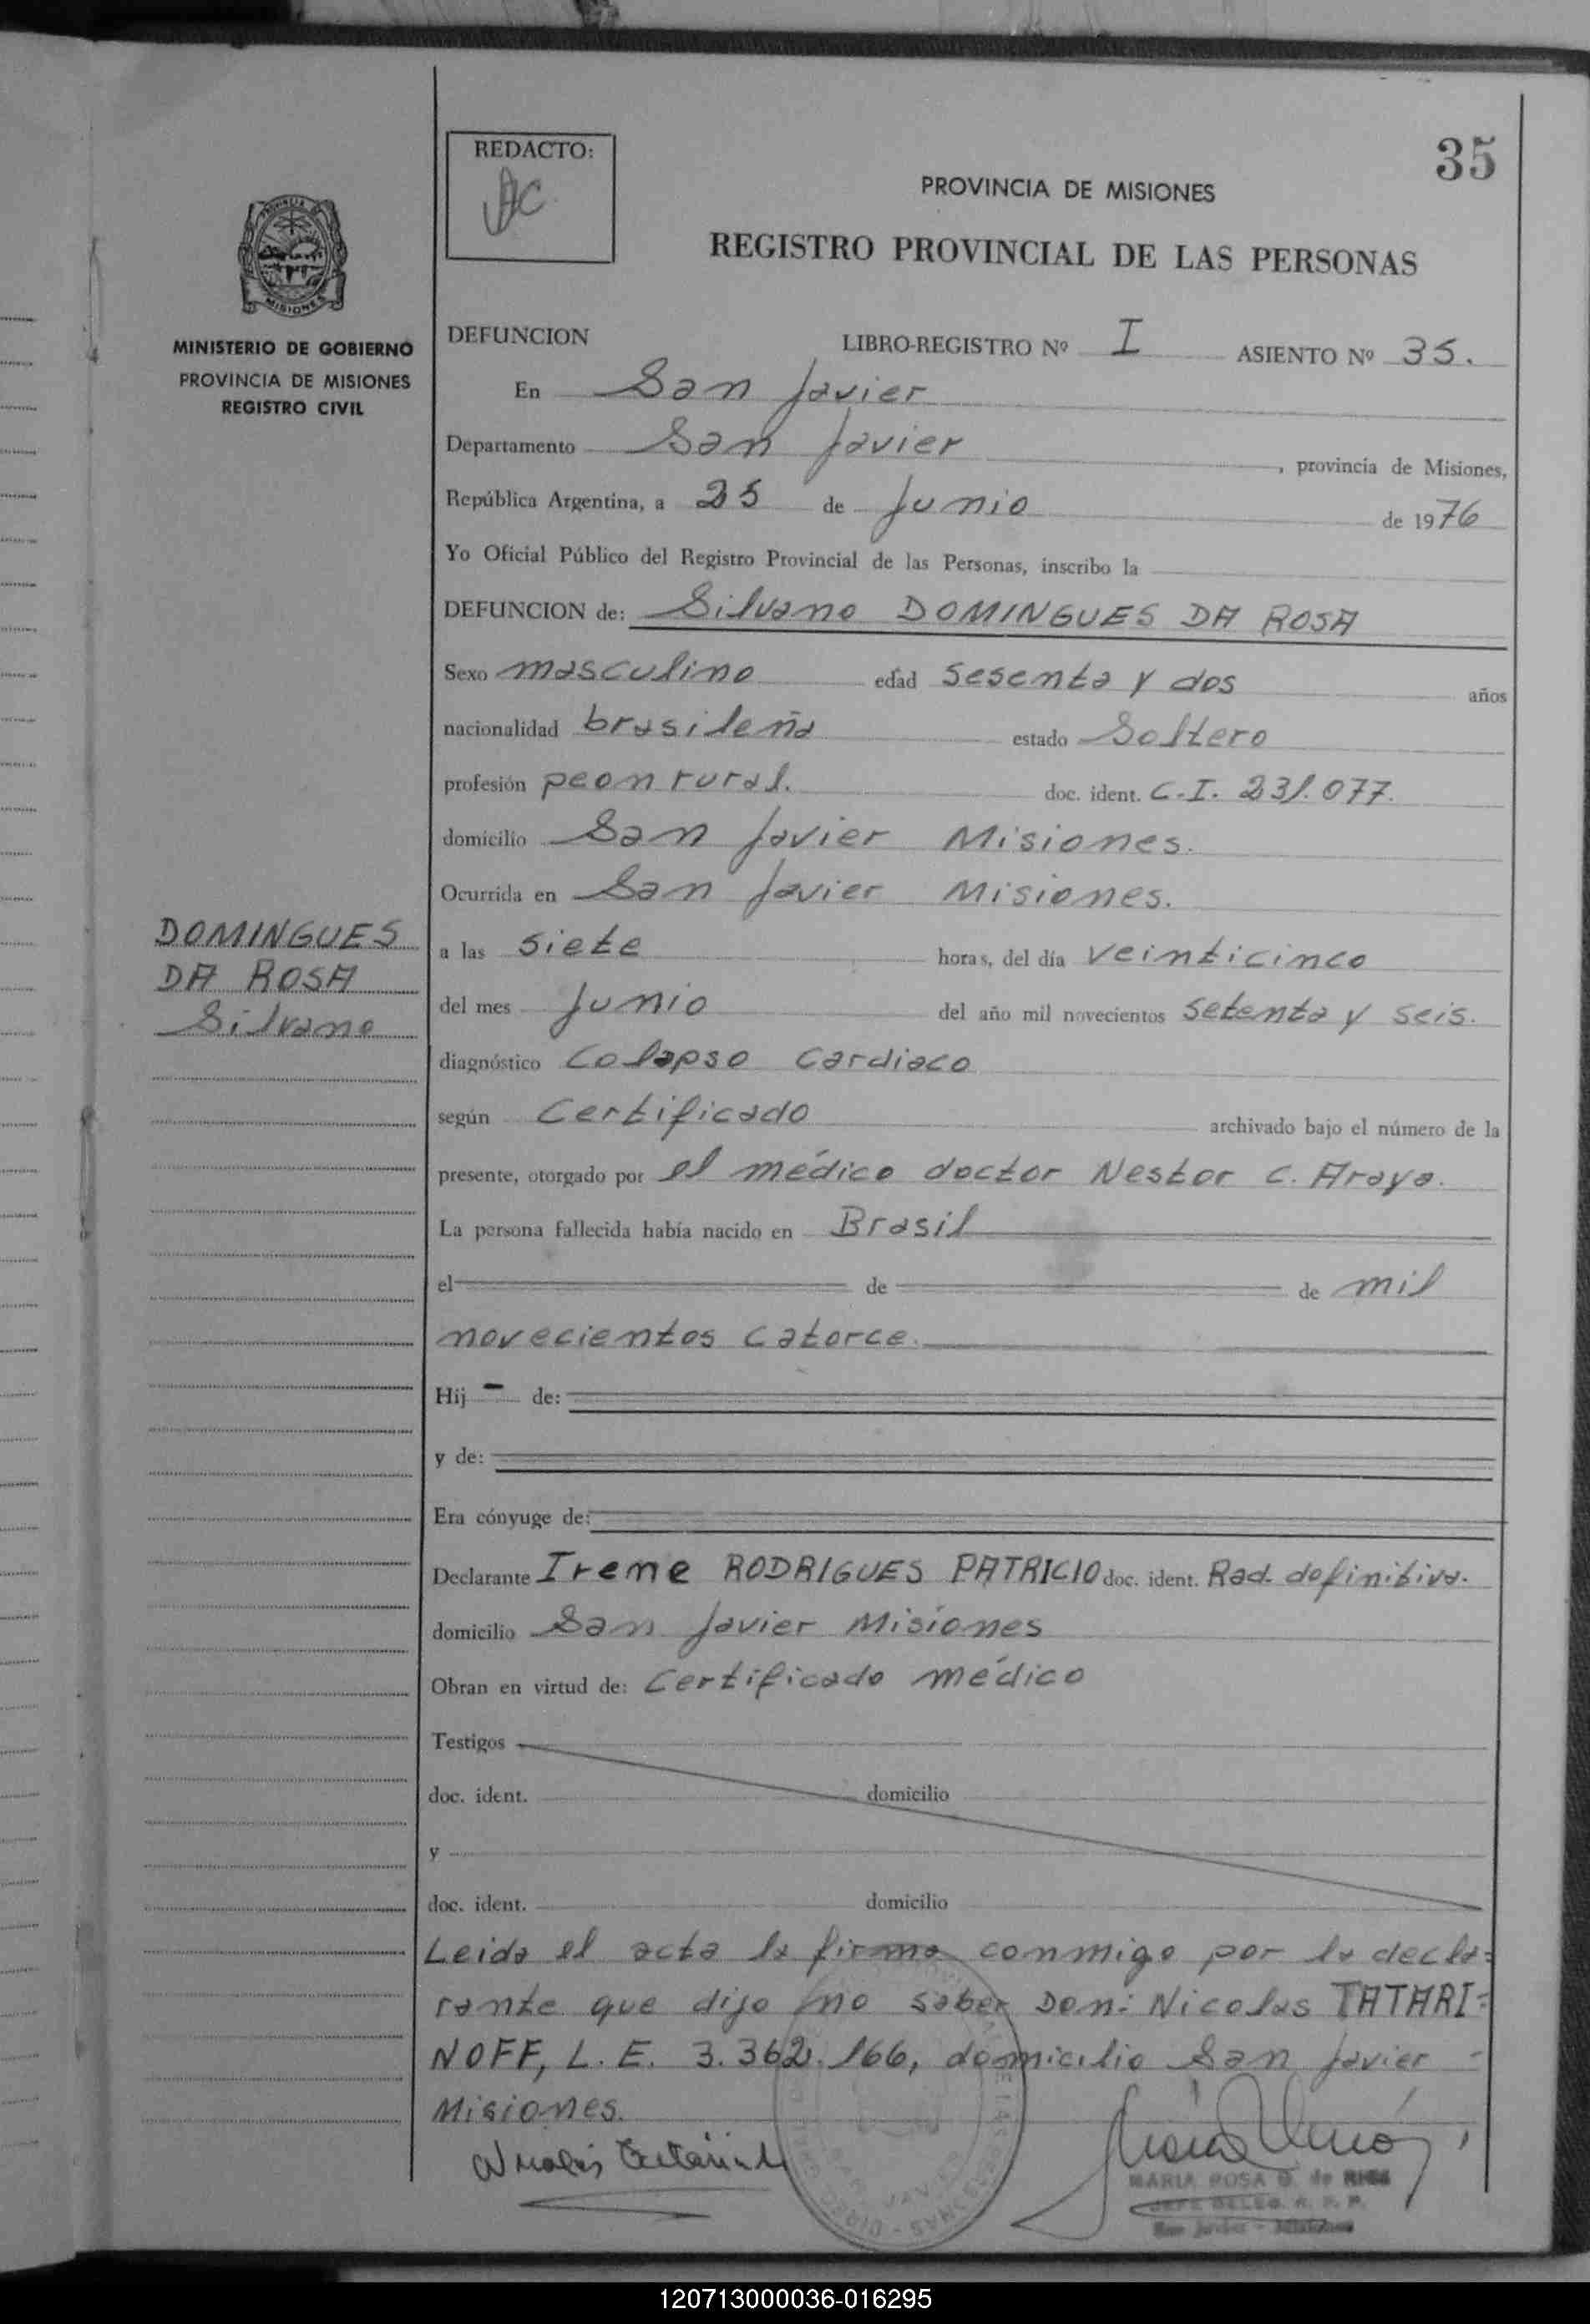 35
REDACTO:
PROVINCIA DE MISIONES
REGISTRO PROVINCIAL DE LAS PERSONAS
MINISTERIO DE GOBIERNO
PROVINCIA DE MISIONES
REGISTRO CIVIL
DEFUNCION LIBRO-REGISTRO Nº I ASIENTO Nº 35.
En San Javier
Departamento San Javier, provincia de Misiones,
República Argentina, a 25 de Junio de 1976
Yo Oficial Público del Registro Provincial de las Personas, inscribo la
DEFUNCION de: Silvano DOMINGUES DA ROSA
Sexo masculino edad sesenta y dos años
nacionalidad brasileña estado Soltero
profesión peon rural. doc. ident. C.I. 231.077.
domicilio San Javier Misiones.
Ocurrida en San Javier Misiones.
DOMINGUES
DA ROSA
Silvano
a las siete horas, del día veinticinco
del mes Junio del año mil novecientos setenta y seis.
diagnóstico Colapso Cardiaco
según Certificado archivado bajo el número de la
presente, otorgado por el médico doctor Nestor C. Araya.
La persona fallecida había nacido en Brasil
el de de mil
novecientos catorce.
Hij - de:
y de:
Era cónyuge de:
Declarante Irene RODRIGUES PATRICIO doc. ident. Rad. definitiva.
domicilio San Javier Misiones
Obran en virtud de: Certificado médico
Testigos
doc. ident. domicilio
y
doc. ident. domicilio
Leida el acta la firma conmigo por la decla=
rante que dijo no saber Don: Nicolas TATARI=
NOFF, L. E. 3.362.166, domicilio San Javier -
Misiones.
MARIA ROSA G. de RIOS
JEFE DELEG. R. P. P.
San Javier - Misiones
120713000036-016295